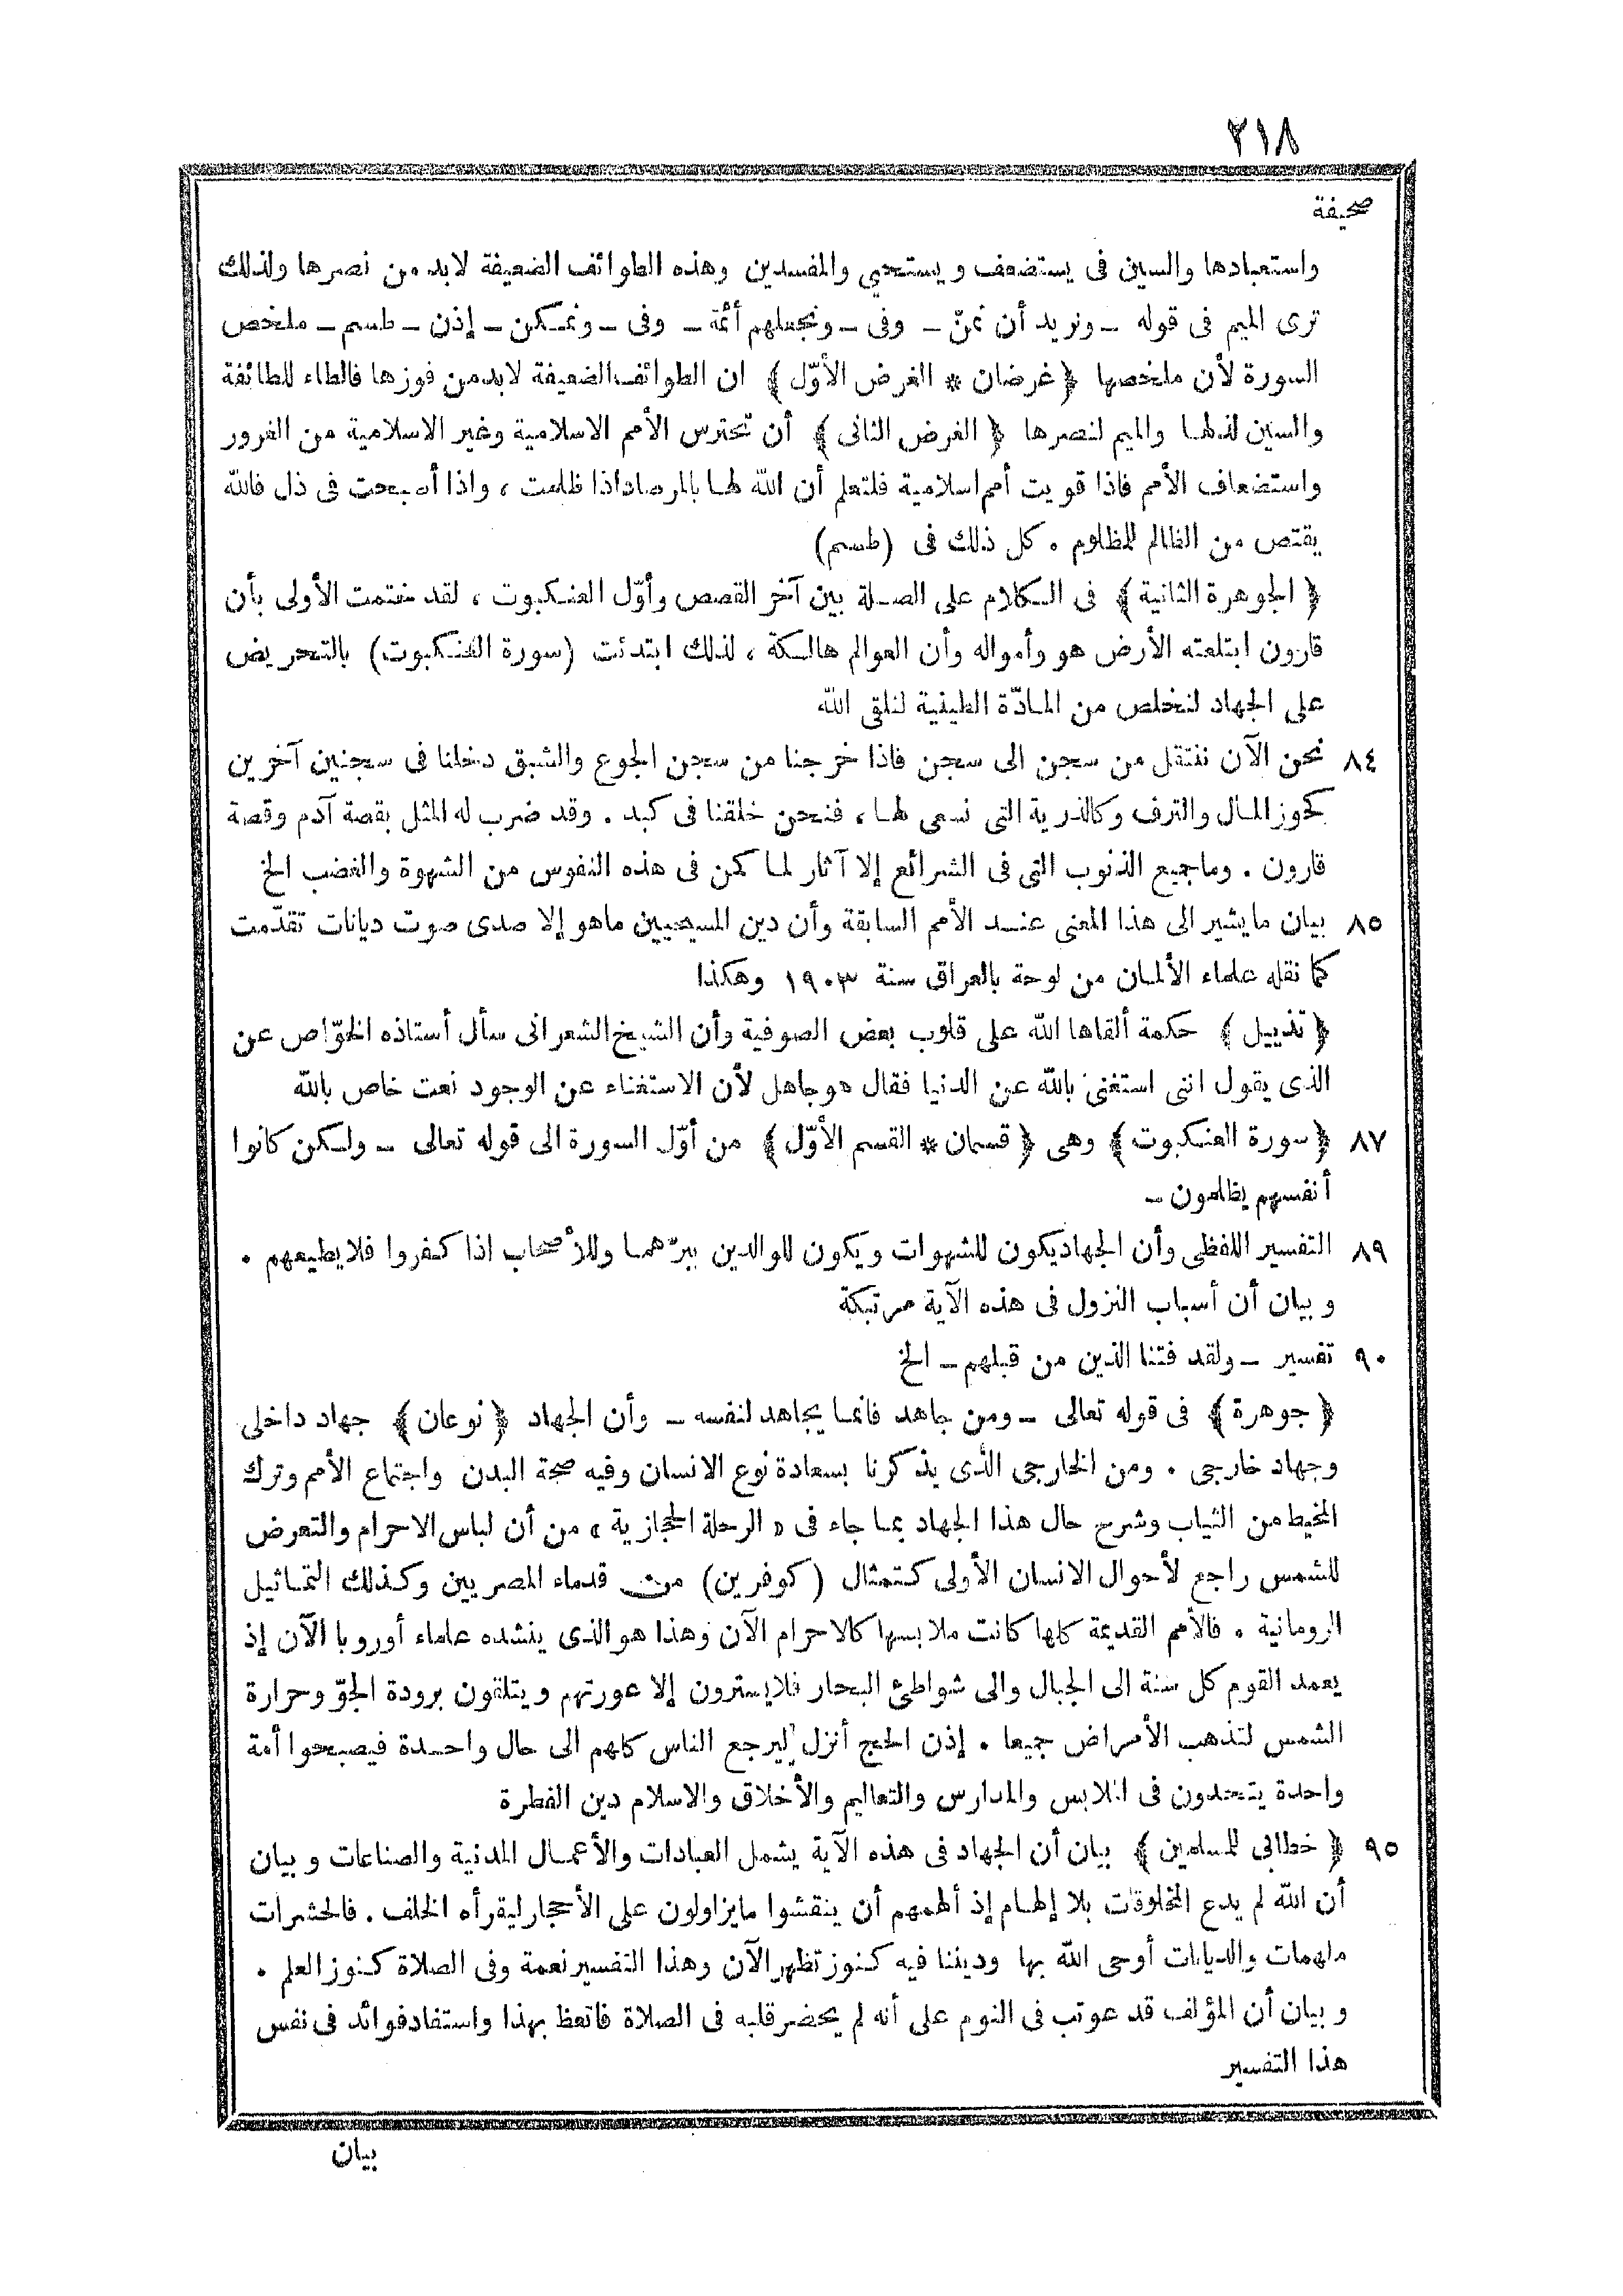 ٢١٨
صحيفة
واستعبادها والسين فى يستضعف ويستحيي والمفسدين وهذه الطوائف الضعيفة لابد من نصرها ولذلك
ترى الميم فى قوله ـ ونريد أن نمنّ ـ وفى ـ ونجعلهم أئمة ـ وفى ـ ونمكن ـ إذن ـ طسم ـ ملخص
السورة لأن ملخصها ﴿ غرضان * الغرض الأوّل ﴾ ان الطوائف الضعيفة لابد من فوزها فالطاء للطائفة
والسين لذلها والميم لنصرها ﴿ الغرض الثانى ﴾ أن تحترس الأمم الاسلامية وغير الاسلامية من الغرور
واستضعاف الأمم فاذا قويت أمم اسلامية فلتعلم أن الله لها بالمرصاد اذا ظلمت ، واذا أصبحت فى ذل فالله
يقتص من الظالم للمظلوم . كل ذلك فى (طسم)
﴿ الجوهرة الثانية ﴾ فى الكلام على الصلة بين آخر القصص وأوّل العنكبوت ، لقد ختمت الأولى بأن
قارون ابتلعته الأرض هو وأمواله وأن العوالم هالكة ، لذلك ابتدئت (سورة العنكبوت) بالتحريض
على الجهاد لنخلص من المادّة الطينية لنلقى الله
٨٤ نحن الآن ننتقل من سجن الى سجن فاذا خرجنا من سجن الجوع والشبق دخلنا فى سجنين آخرين
كحوز المال والترف وكالذرية التى نسعى لها ، فنحن خلقنا فى كبد . وقد ضرب له المثل بقصة آدم وقصة
قارون . وماجميع الذنوب التى فى الشرائع إلا آثار لما كمن فى هذه النفوس من الشهوة والغضب الخ
٨٥ بيان مايشير الى هذا المعنى عند الأمم السابقة وأن دين المسيحيين ماهو إلا صدى صوت ديانات تقدّمت
كما نقله علماء الألمان من لوحة بالعراق سنة ١٩٠٣ وهكذا
﴿ تذييل ﴾ حكمة ألقاها الله على قلوب بعض الصوفية وأن الشيخ الشعرانى سأل أستاذه الخوّاص عن
الذى يقول اننى استغنى بالله عن الدنيا فقال هو جاهل لأن الاستغناء عن الوجود نعت خاص بالله
٨٧ ﴿ سورة العنكبوت ﴾ وهى ﴿ قسمان * القسم الأوّل ﴾ من أوّل السورة الى قوله تعالى ـ ولكن كانوا
أنفسهم يظلمون ـ
٨٩ التفسير اللفظى وأن الجهاد يكون للشهوات ويكون للوالدين ببرّهما وللأصحاب اذا كفروا فلا يطيعهم .
وبيان أن أسباب النزول فى هذه الآية مرتبكة
٩٠ تفسير ـ ولقد فتنا الذين من قبلهم ـ الخ
﴿ جوهرة ﴾ فى قوله تعالى ـ ومن جاهد فانما يجاهد لنفسه ـ وأن الجهاد ﴿ نوعان ﴾ جهاد داخلى
وجهاد خارجى . ومن الخارجى الذى يذكرنا بسعادة نوع الانسان وفيه صحة البدن واجتماع الأمم وترك
المخيط من الثياب وشرح حال هذا الجهاد بما جاء فى « الرحلة الحجازية » من أن لباس الاحرام والتعرض
للشمس راجع لأحوال الانسان الأولى كتمثال (كوفرين) من قدماء المصريين وكذلك التماثيل
الرومانية . فالأمم القديمة كلها كانت ملابسها كالاحرام الآن وهذا هو الذى ينشده علماء أوروبا الآن إذ
يعمد القوم كل سنة الى الجبال والى شواطئ البحار فلا يسترون إلا عورتهم ويتلقون برودة الجوّ وحرارة
الشمس لتذهب الأمراض جميعا . إذن الحج أنزل ليرجع الناس كلهم الى حال واحدة فيصبحوا أمة
واحدة يتحدون فى الملابس والمدارس والتعاليم والأخلاق والاسلام دين الفطرة
٩٥ ﴿ خطابى للمسلمين ﴾ بيان أن الجهاد فى هذه الآية يشمل العبادات والأعمال المدنية والصناعات وبيان
أن الله لم يدع المخلوقات بلا إلهام إذ ألهمهم أن ينقشوا مايزاولون على الأحجار ليقرأه الخلف . فالحشرات
ملهمات والديانات أوحى الله بها وديننا فيه كنوز تظهر الآن وهذا التفسير نعمة وفى الصلاة كنوز العلم .
وبيان أن المؤلف قد عوتب فى النوم على أنه لم يحضر قلبه فى الصلاة فاتعظ بهذا واستفاد فوائد فى نفس
هذا التفسير
بيان